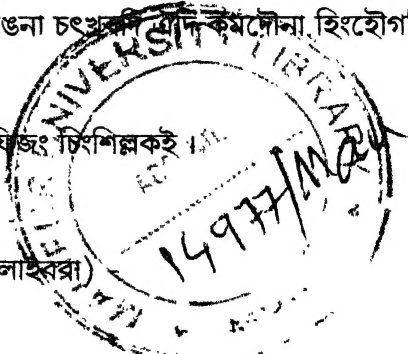 ঙনা চৎখ্রবদি ঐদি কমদৌনা হিংহৌগ
ফিজং চিংশিল্লকই ।
লাইবরা)
UNIVERSITY LIBRARY
14977/Man